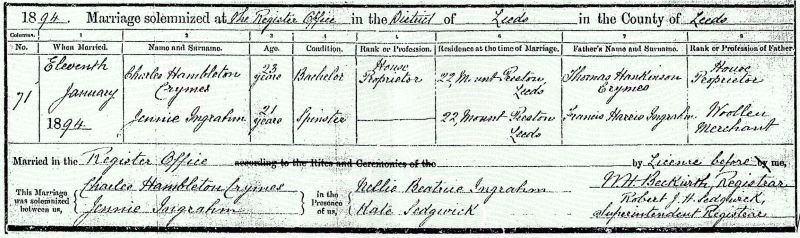 1894. Marriage solemnized at The Register Office in the District of Leeds in the County of Leeds
Columns. 1 2 3 4 5 6 7 8
No. When Married. Name and Surname. Age. Condition. Rank or Profession. Residence at the time of Marriage. Father's Name and Surname. Rank or Profession of Father
71 Eleventh January 1894. Charles Hambleton Crymes 23 years Bachelor House Proprietor 22, Mount Preston Leeds Thomas Crymes House Proprietor
Jennie Ingrahm 21 years Spinster 22 Mount Preston Leeds Francis Harris Ingrahm Woollen Merchant
Married in the Register Office according to the Rites and Ceremonies of the by Licence before by me,
This Marriage was solemnized between us, Charles Hambleton Crymes Jennie Ingrahm in the Presence of us, Nellie Beatrice Ingrahm Kate Sedgwick W H Beckwith, Registrar
Robert J. H. Sedgwick,
Superintendent Registrar